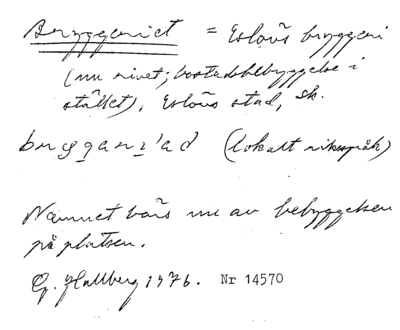 Bryggeriet = Eslövs bryggeri
(nu rivet; bostadsbebyggelse i
stället), Eslövs stad, Sk.
(lokalt riksspråk)
Namnet bärs nu av bebyggelsen
på platsen.
G. Hallberg 1976. Nr 14570